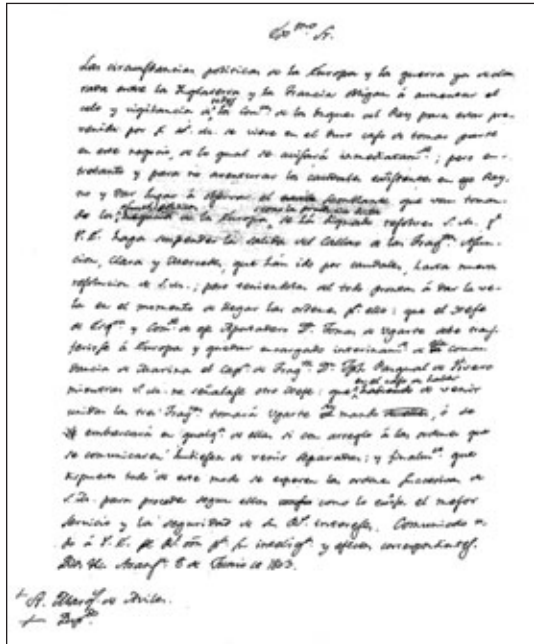 Exmo Sr.
Las circunstancias politicas de la Europa y la guerra ya decla
rada entre la Inglaterra y la Francia obligan á aumentar el
celo y vigilancia de los Com.tes de los buques del Rey para estar pre
venidos por si S. M. se viere en el duro caso de tomar parte
en este negocio, de lo qual se avisará inmediatam.te; pero en-
tretanto y para no aventurar los caudales existentes en ese Rey-
no y dar lugar á observar el semblante que van toman
do los de la Europa, se há dignado resolver S. M. q.e
V. E. haga suspender la salida del Callao de las Frag.tas Asun-
cion, Clara y Mercedes, que hán ido por caudales, hasta nueva
resolucion de S. M.; pero teniendolas del todo prontas á dar la ve-
la en el momento de llegar las ordenes p.a ello: que el Xefe
de Esq.a y Com.te de ese Apostadero D. Tomas de Ugarte debe trans
ferirse á Europa y quedar encargado interinam.te de la coman
dancia de Marina el Cap.n de Frag.ta D. Jph. Pasqual de Vivero
mientras S. M. no señalase otro Xefe: que en el caso de haber de venir
unidas las tres Frag.tas tomará Ugarte el mando, ó se
embarcará en qualq.a de ellas si con arreglo á las ordenes que
se comunicaren hubiesen de venir separadas; y finalm.te que
dispuesto todo de este modo se esperen las ordenes sucesivas de
S. M. para proceder segun ellas como lo exija el mejor
servicio y la seguridad de sus R.s intereses. Comunícolo to-
do á V. E. de R.l orn p.a su intelig.a y efectos correspondientes.
Dios &a. Aranj.z 8 de Junio de 1803.
Sr. Marq.s de Aviles.